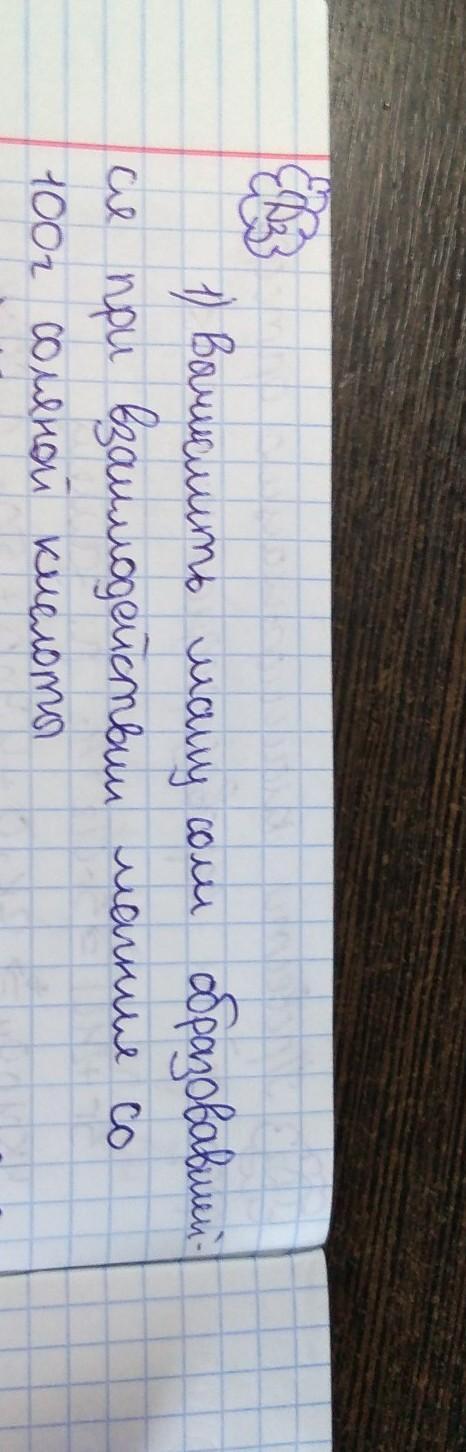 ДЗ
1) Вычислить массу соли образовавшей-
ся при взаимодействии магния со
100г соляной кислоты